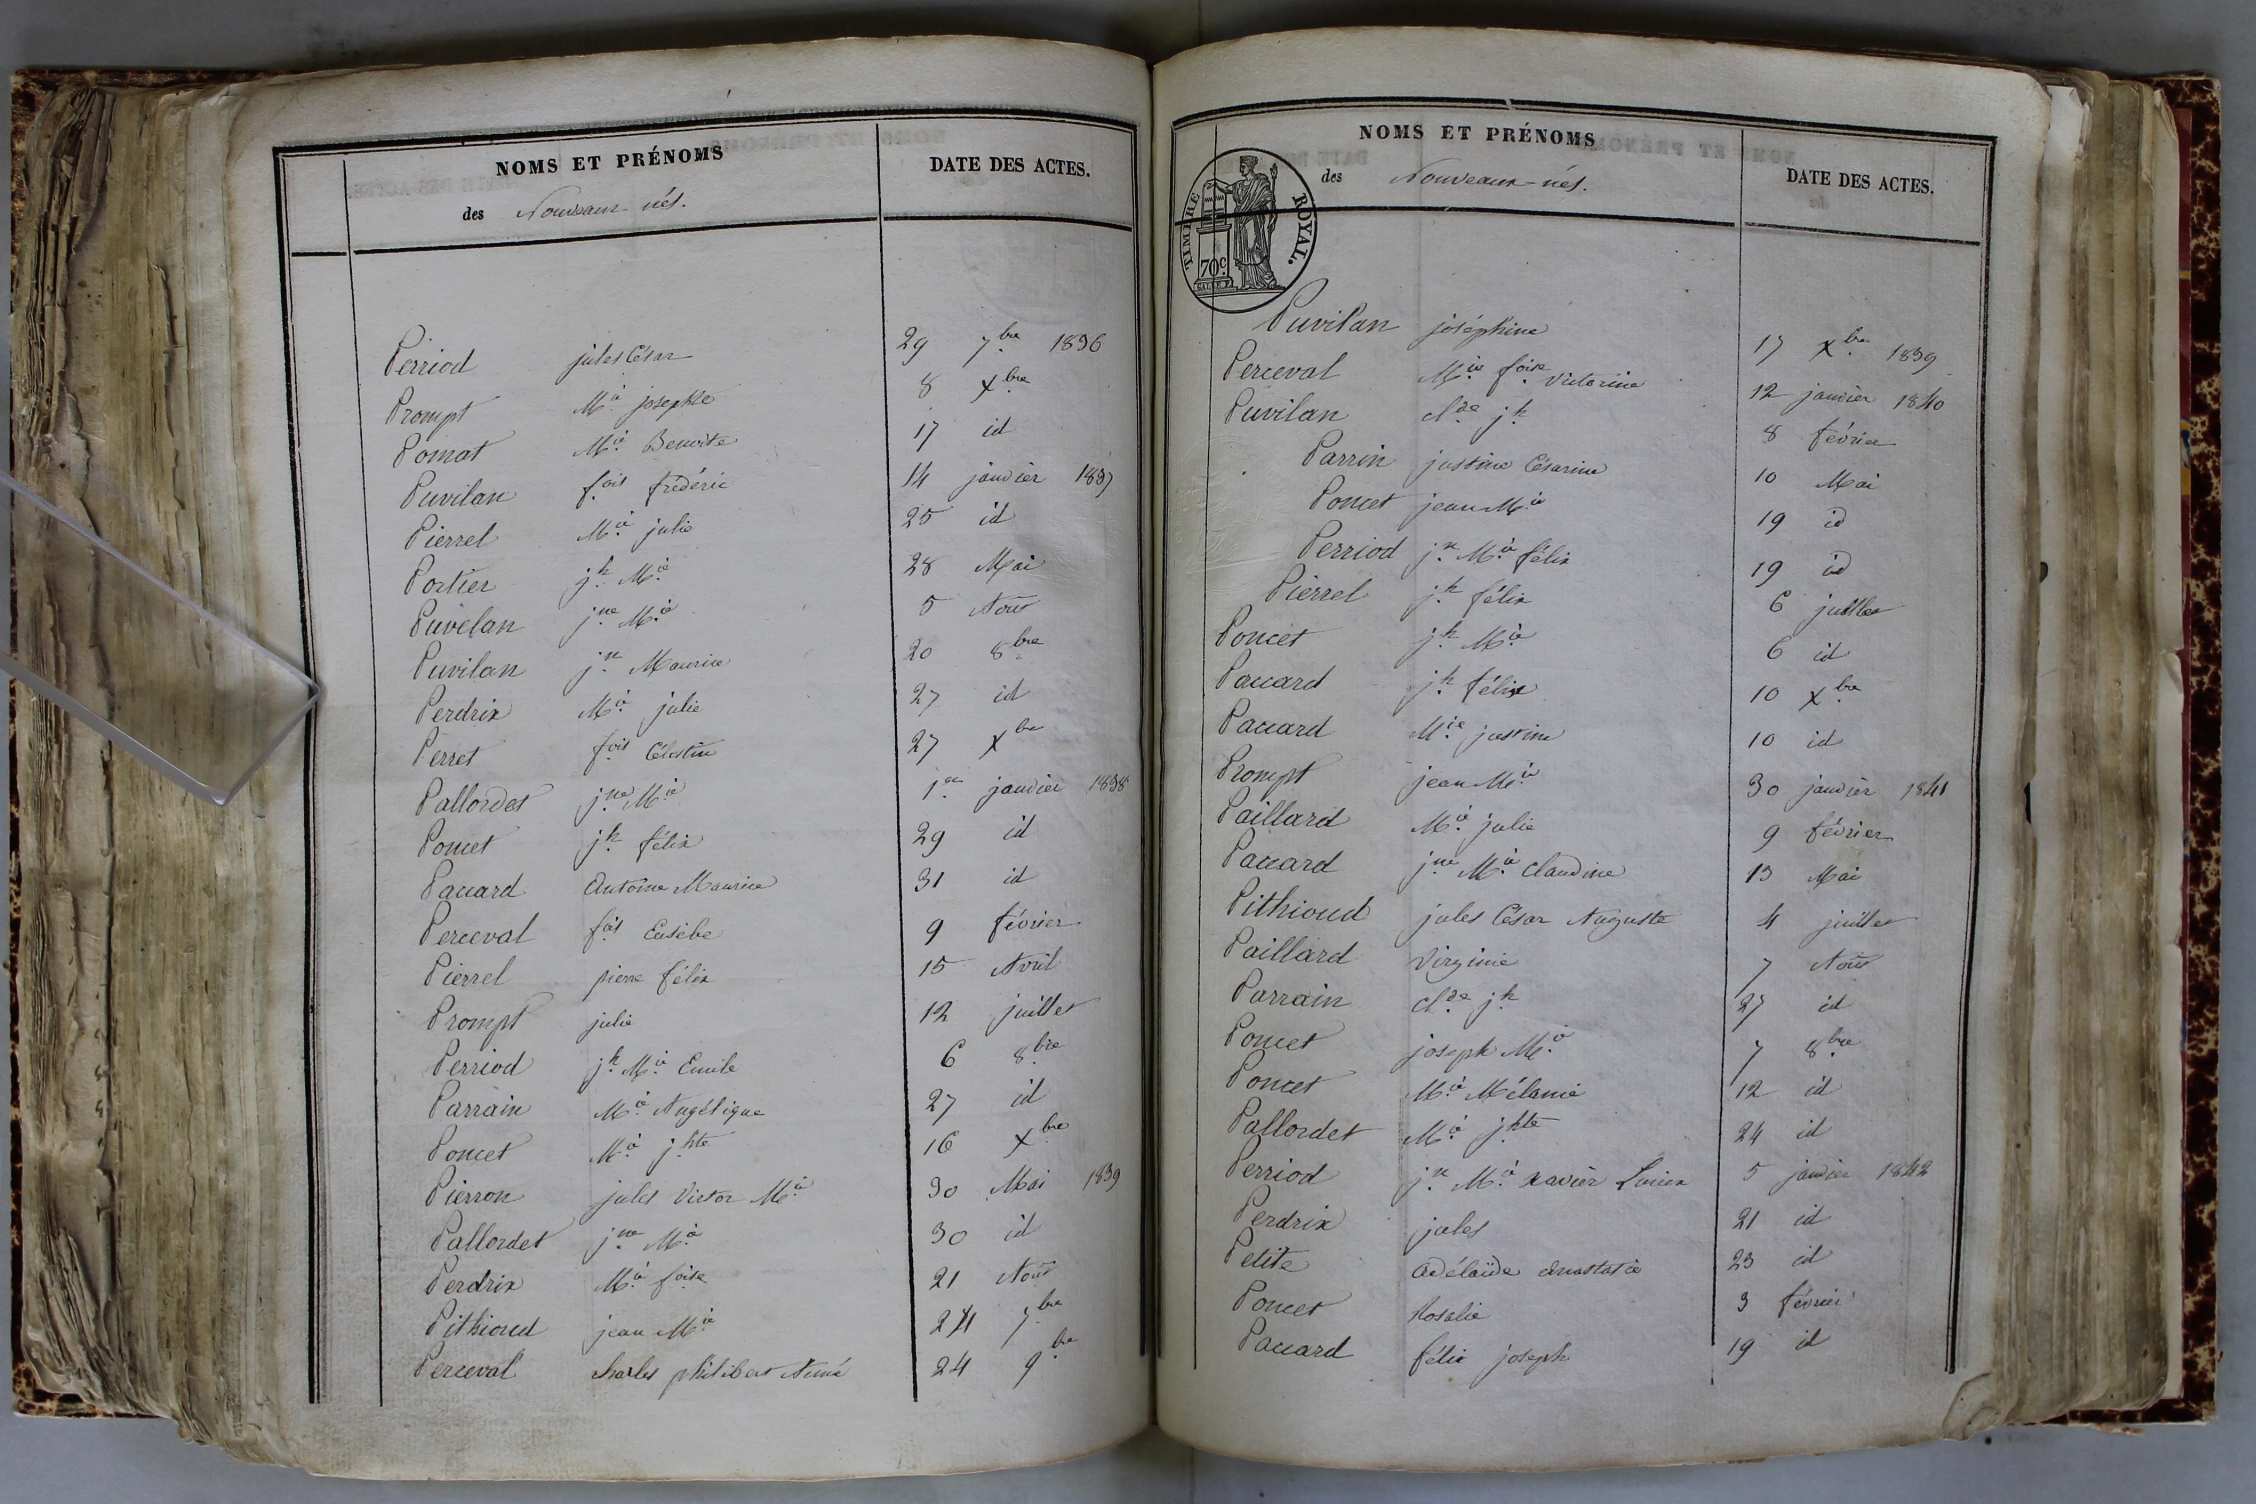 NOMS ET PRÉNOMS
des Nouveaux-nés.
DATE DES ACTES.
Perriod jules César 29 7bre 1836
Prompt Mie josephte 8 Xbre
Pomat Mie Benoite 17 id
Puvilan fois frédéric 14 janvier 1837
Pierrel Mie julie 25 id
Portier jh Mie 28 Mai
Puvelan jne Mie 5 Aout
Puvilan jn Maurice 20 8bre
Perdrix Mie julie 27 id
Perret fois Célestin 27 Xbre
Pallordet jne Mie 1er janvier 1838
Poncet jh félix 29 id
Paccard Antoine Maurice 31 id
Perceval fois Eusèbe 9 février
Pierrel pierre félix 15 Avril
Prompt julie 12 juillet
Perriod jh Mie Emile 6 8bre
Parrain Mie Angélique 27 id
Poncet Mie jhte 16 Xbre
Pierron jules Victor Mie 30 Mai 1839
Pallordet jne Mie 30 id
Perdrix Mie foise 21 Aout
Pithioud jean Mie 24 7bre
Perceval charles philibert Aimé 24 9bre
NOMS ET PRÉNOMS
des Nouveaux-nés.
DATE DES ACTES.
TIMBRE ROYAL.
70c
Puvilan joséphine 17 Xbre 1839
Perceval Mie foise Victorine 12 janvier 1840
Puvilan clde jh 8 février
Parrin justine Césarine 10 Mai
Poncet jean Mie 19 id
Perriod jn Mie félix 19 id
Pierrel jh félix 6 juillet
Poncet jh Mie 6 id
Paccard jh félix 10 Xbre
Paccard Mie justine 10 id
Prompt jean Mie 30 janvier 1841
Paillard Mie julie 9 février
Paccard jne Mie Claudine 13 Mai
Pithioud jules César Auguste 4 juillet
Paillard Virginie 7 Aout
Parrain clde jh 27 id
Poncet joseph Mie 7 8bre
Poncet Mie Mélanie 12 id
Pallordet Mie jhte 24 id
Perriod jn Mie xavier Lucien 5 janvier 1842
Perdrix jules 21 id
Petite Adélaïde anastasie 23 id
Poncet Rosalie 3 février
Paccard félix joseph 19 id